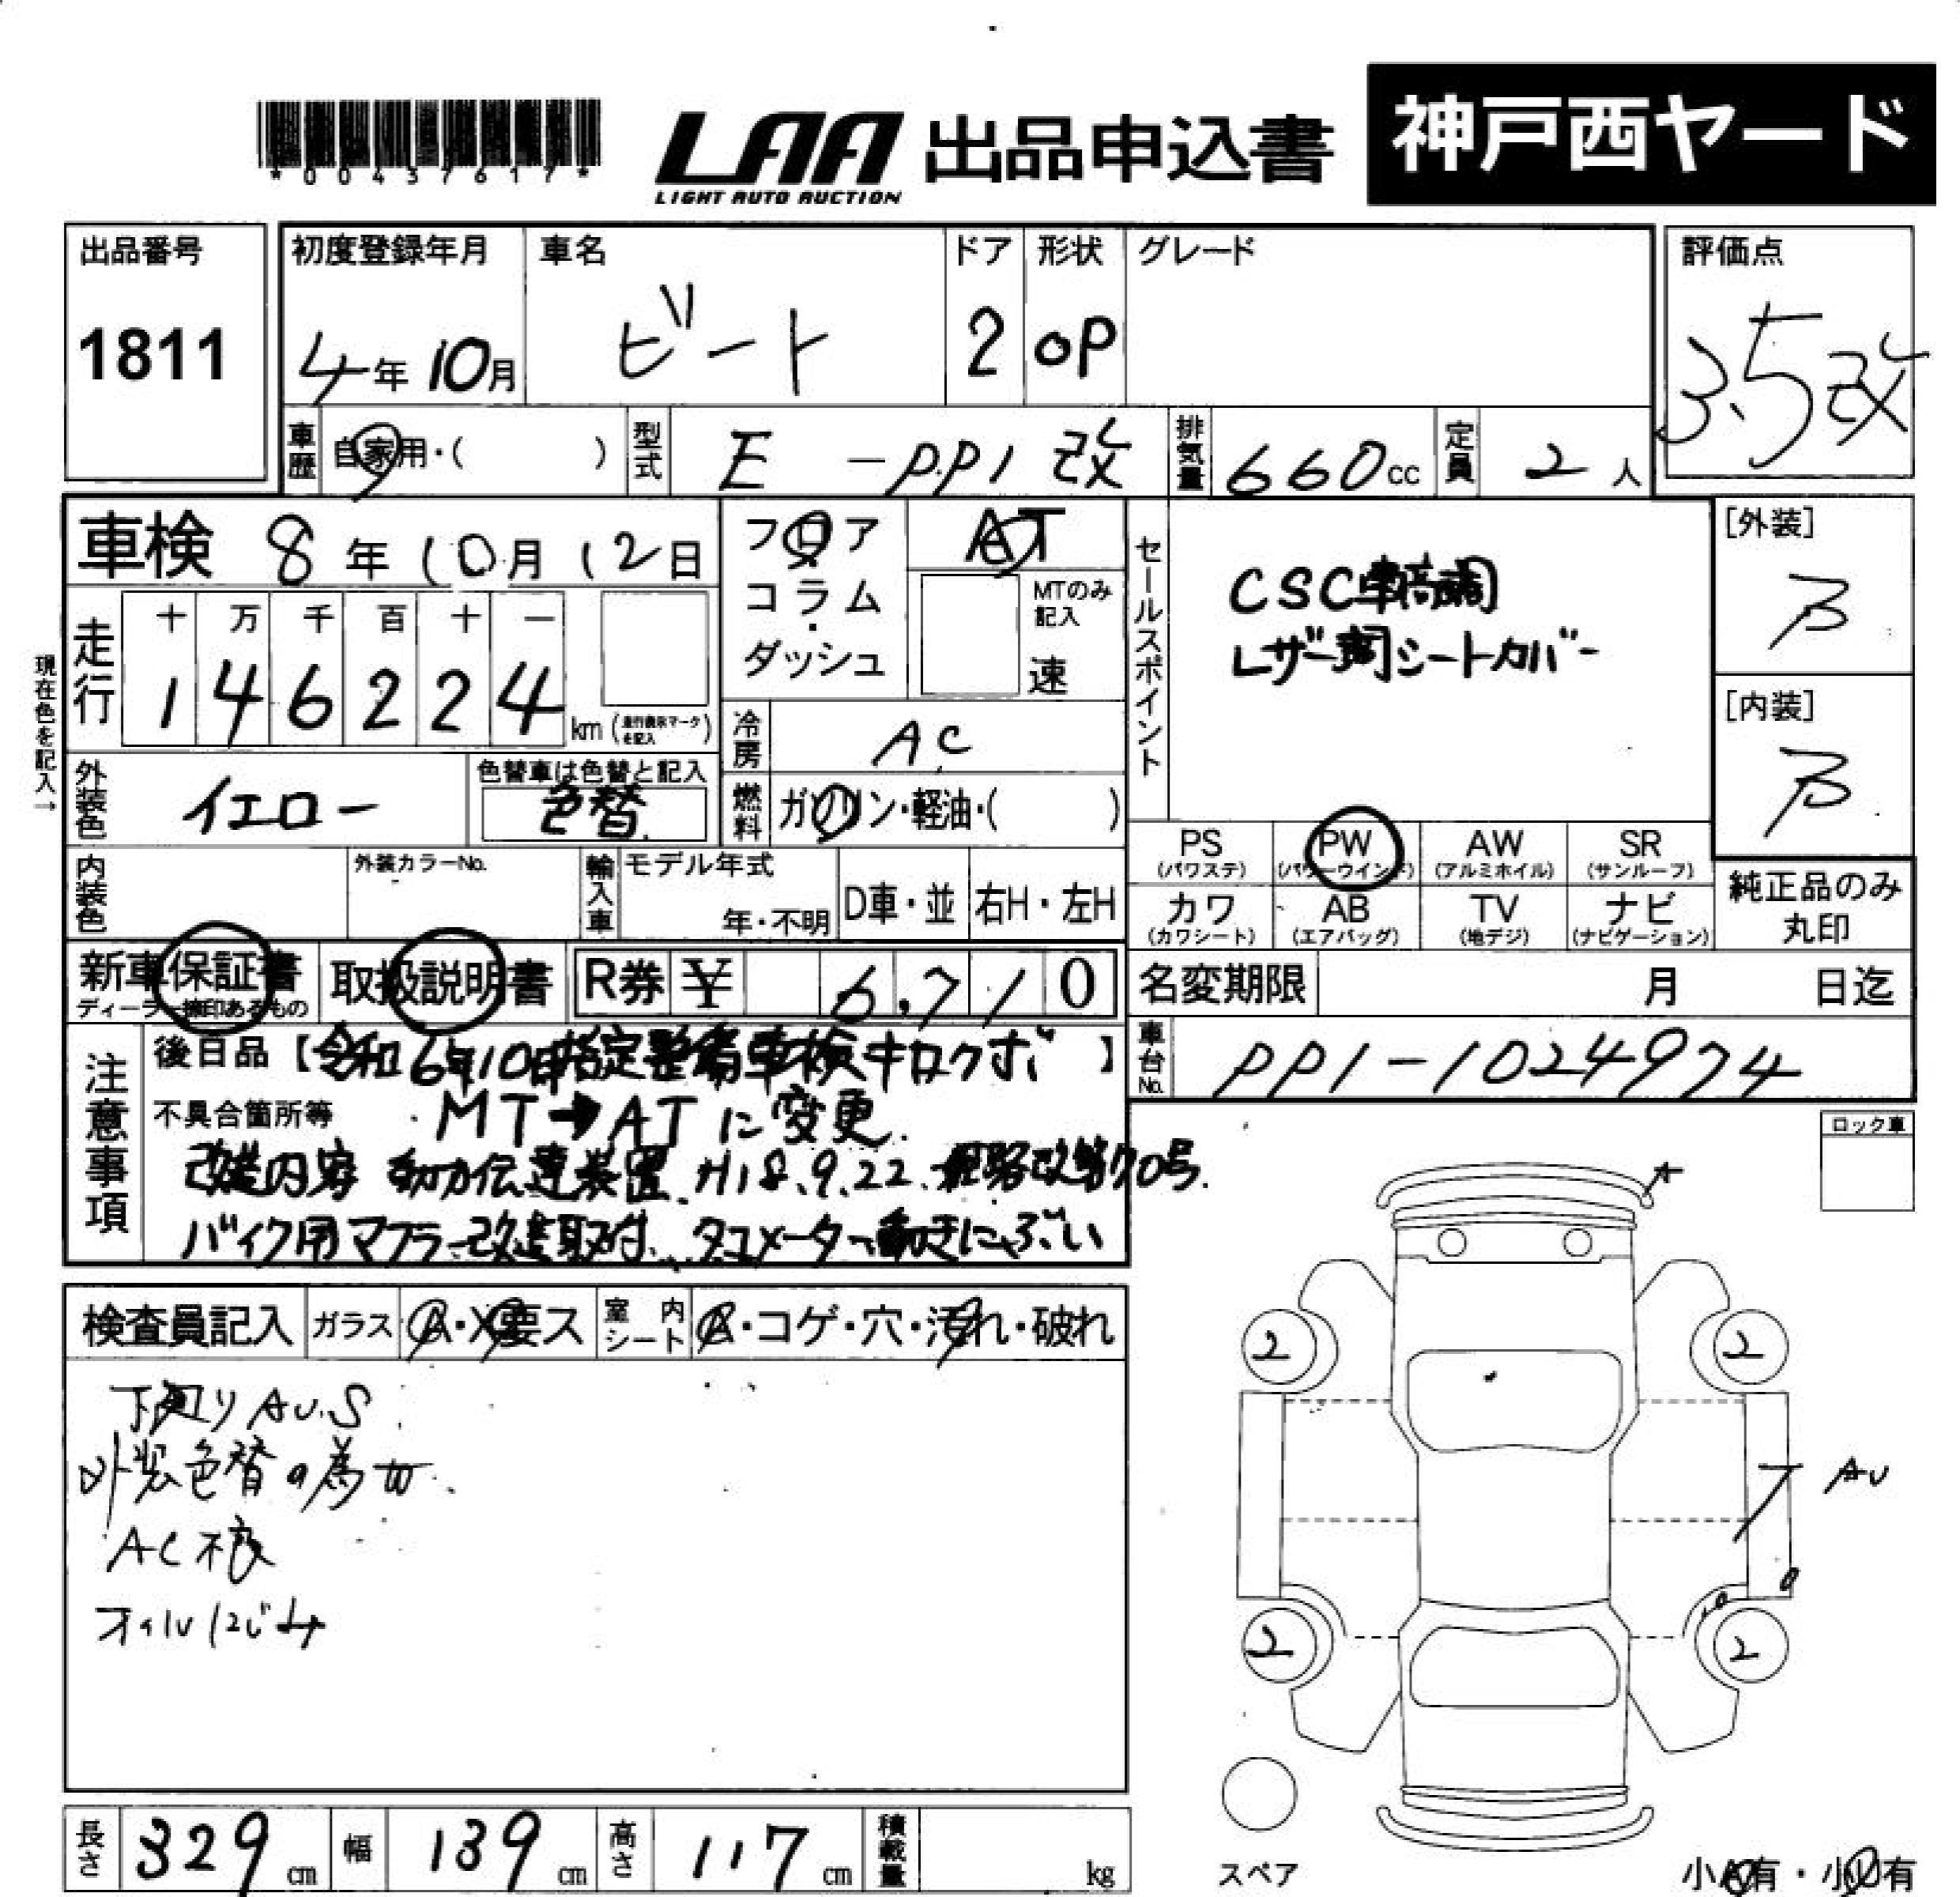 *00437617*
LAA
LIGHT AUTO AUCTION
出品申込書
神戸西ヤード
出品番号
1811
初度登録年月
4年10月
車名
ビート
ドア
2
形状
OP
グレード
評価点
3.5改
車歴
自家用・( )
型式
E-PP1改
排気量
660cc
定員
2人
車検 8年10月12日
走行
十 万 千 百 十 一
1 4 6 2 2 4 km
(走行表示マークを記入)
現在色を記入→
フロア
コラム
・
ダッシュ
AT
MTのみ記入
速
冷房
AC
燃料
ガソリン・軽油・( )
セールスポイント
CSC車高調
レザー調シートカバー
[外装]
B
[内装]
B
外装色
イエロー
色替車は色替と記入
色替
内装色
外装カラーNo.
輸入車
モデル年式
年・不明
D車・並
右H・左H
PS
(パワステ)
PW
(パワーウインド)
AW
(アルミホイル)
SR
(サンルーフ)
カワ
(カワシート)
AB
(エアバッグ)
TV
(地デジ)
ナビ
(ナビゲーション)
純正品のみ
丸印
新車保証書
ディーラー捺印あるもの
取扱説明書
R券 ¥ 6,710
名変期限
月 日迄
車台No.
PP1-1024974
注意事項
後日品【令和6年10月指定整備車検キロクボ】
不具合箇所等
MT→ATに変更.
改造内容 動力伝達装置 H18.9.22 改第70号.
バイク用マフラー改造取付、タコメーター動きにぶい
ロック車
検査員記入
ガラス
A・X・要ス
室内シート
・コゲ・穴・汚れ・破れ
下回りAU.S
外装色替の為W.
AC不良
オイルにじみ
A
2
2
AU
2
2
スペア
小A有・小U有
長さ
329cm
幅
139cm
高さ
117cm
積載量
kg